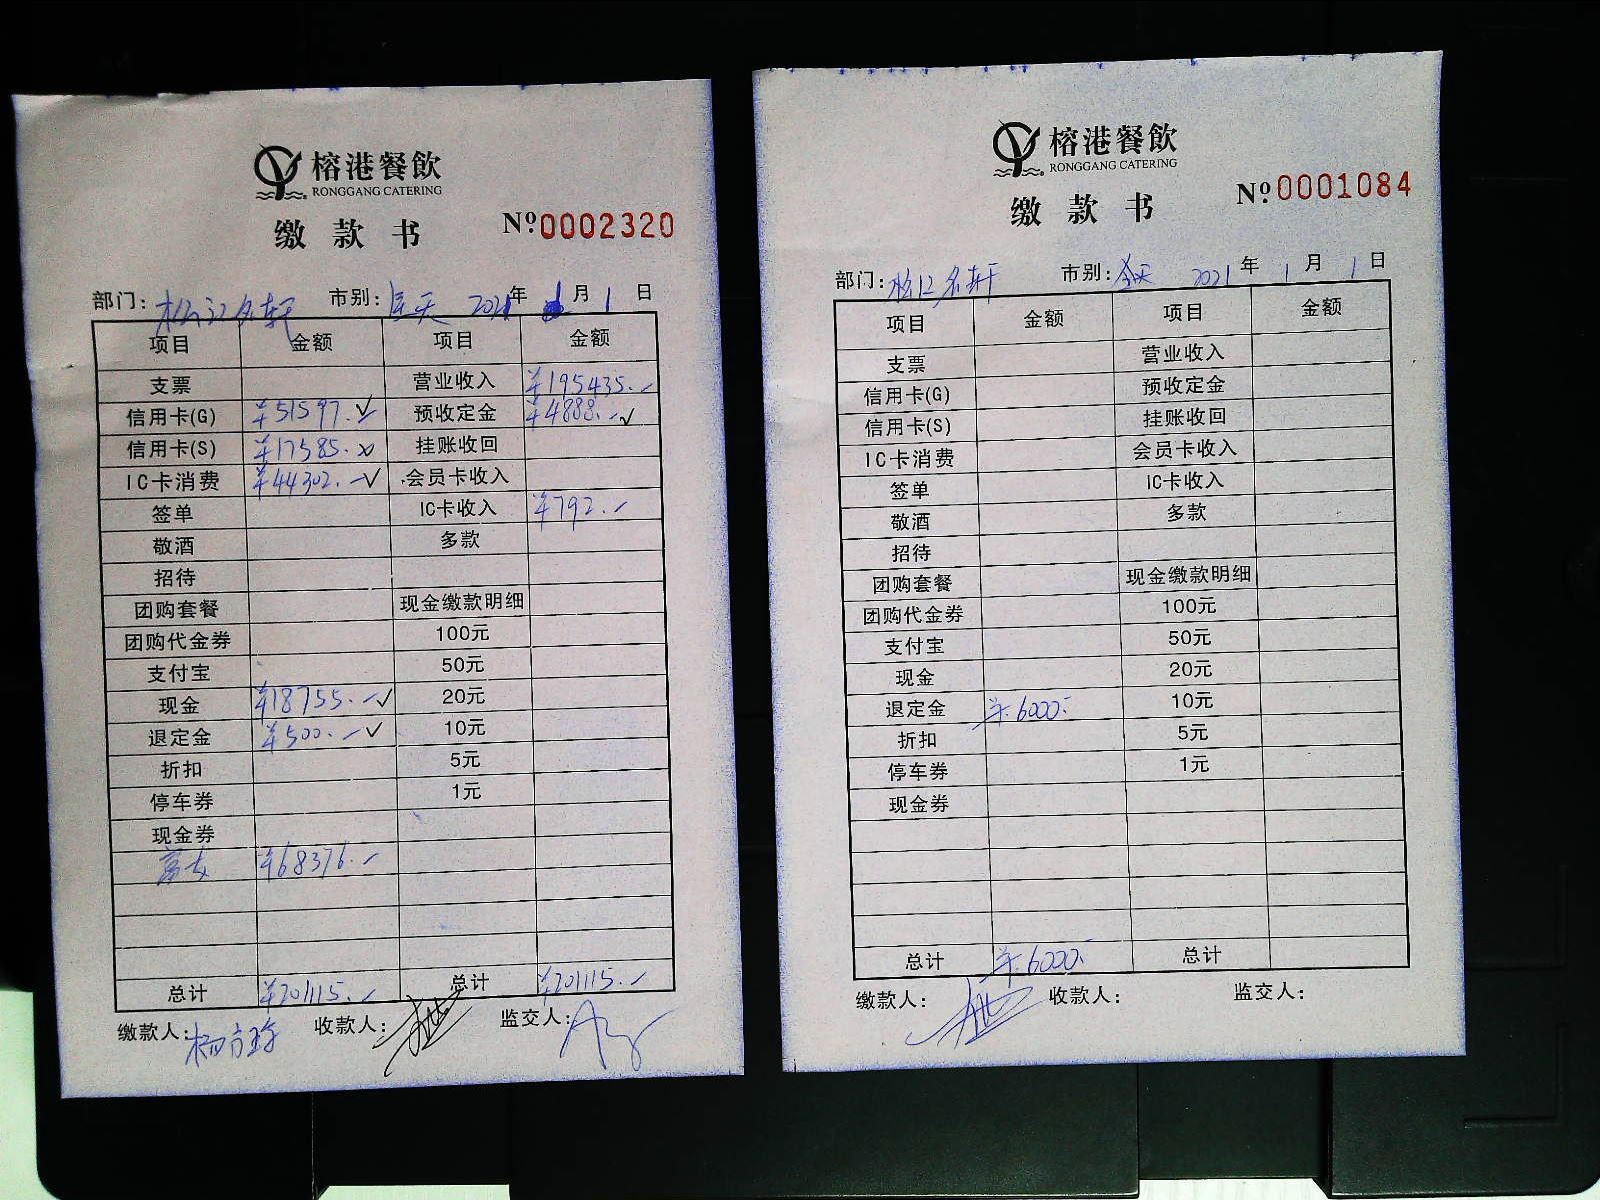 榕港餐飲
RONGGANG CATERING
缴款书
Nº 0002320
部门: 松江名轩 市别: 全天 2021年 1月 1日
项目 金额 项目 金额
支票 营业收入 ¥195435.-
信用卡(G) ¥51597.- ✓ 预收定金 ¥4888.- ✓
信用卡(S) ¥17585.- × 挂账收回
IC卡消费 ¥44302.- ✓ 会员卡收入
签单 IC卡收入 ¥792.-
敬酒 多款
招待
团购套餐 现金缴款明细
团购代金券 100元
支付宝 50元
现金 ¥18755.- ✓ 20元
退定金 ¥500.- ✓ 10元
折扣 5元
停车券 1元
现金券
¥68376.-
总计 ¥201115.- 总计 ¥201115.-
缴款人: 收款人: 监交人:
榕港餐飲
RONGGANG CATERING
缴款书
Nº 0001084
部门: 松江名轩 市别: 全天 2021年 1月 1日
项目 金额 项目 金额
支票 营业收入
信用卡(G) 预收定金
信用卡(S) 挂账收回
IC卡消费 会员卡收入
签单 IC卡收入
敬酒 多款
招待
团购套餐 现金缴款明细
团购代金券 100元
支付宝 50元
现金 20元
退定金 ¥6000- 10元
折扣 5元
停车券 1元
现金券
总计 ¥6000- 总计
缴款人: 收款人: 监交人: